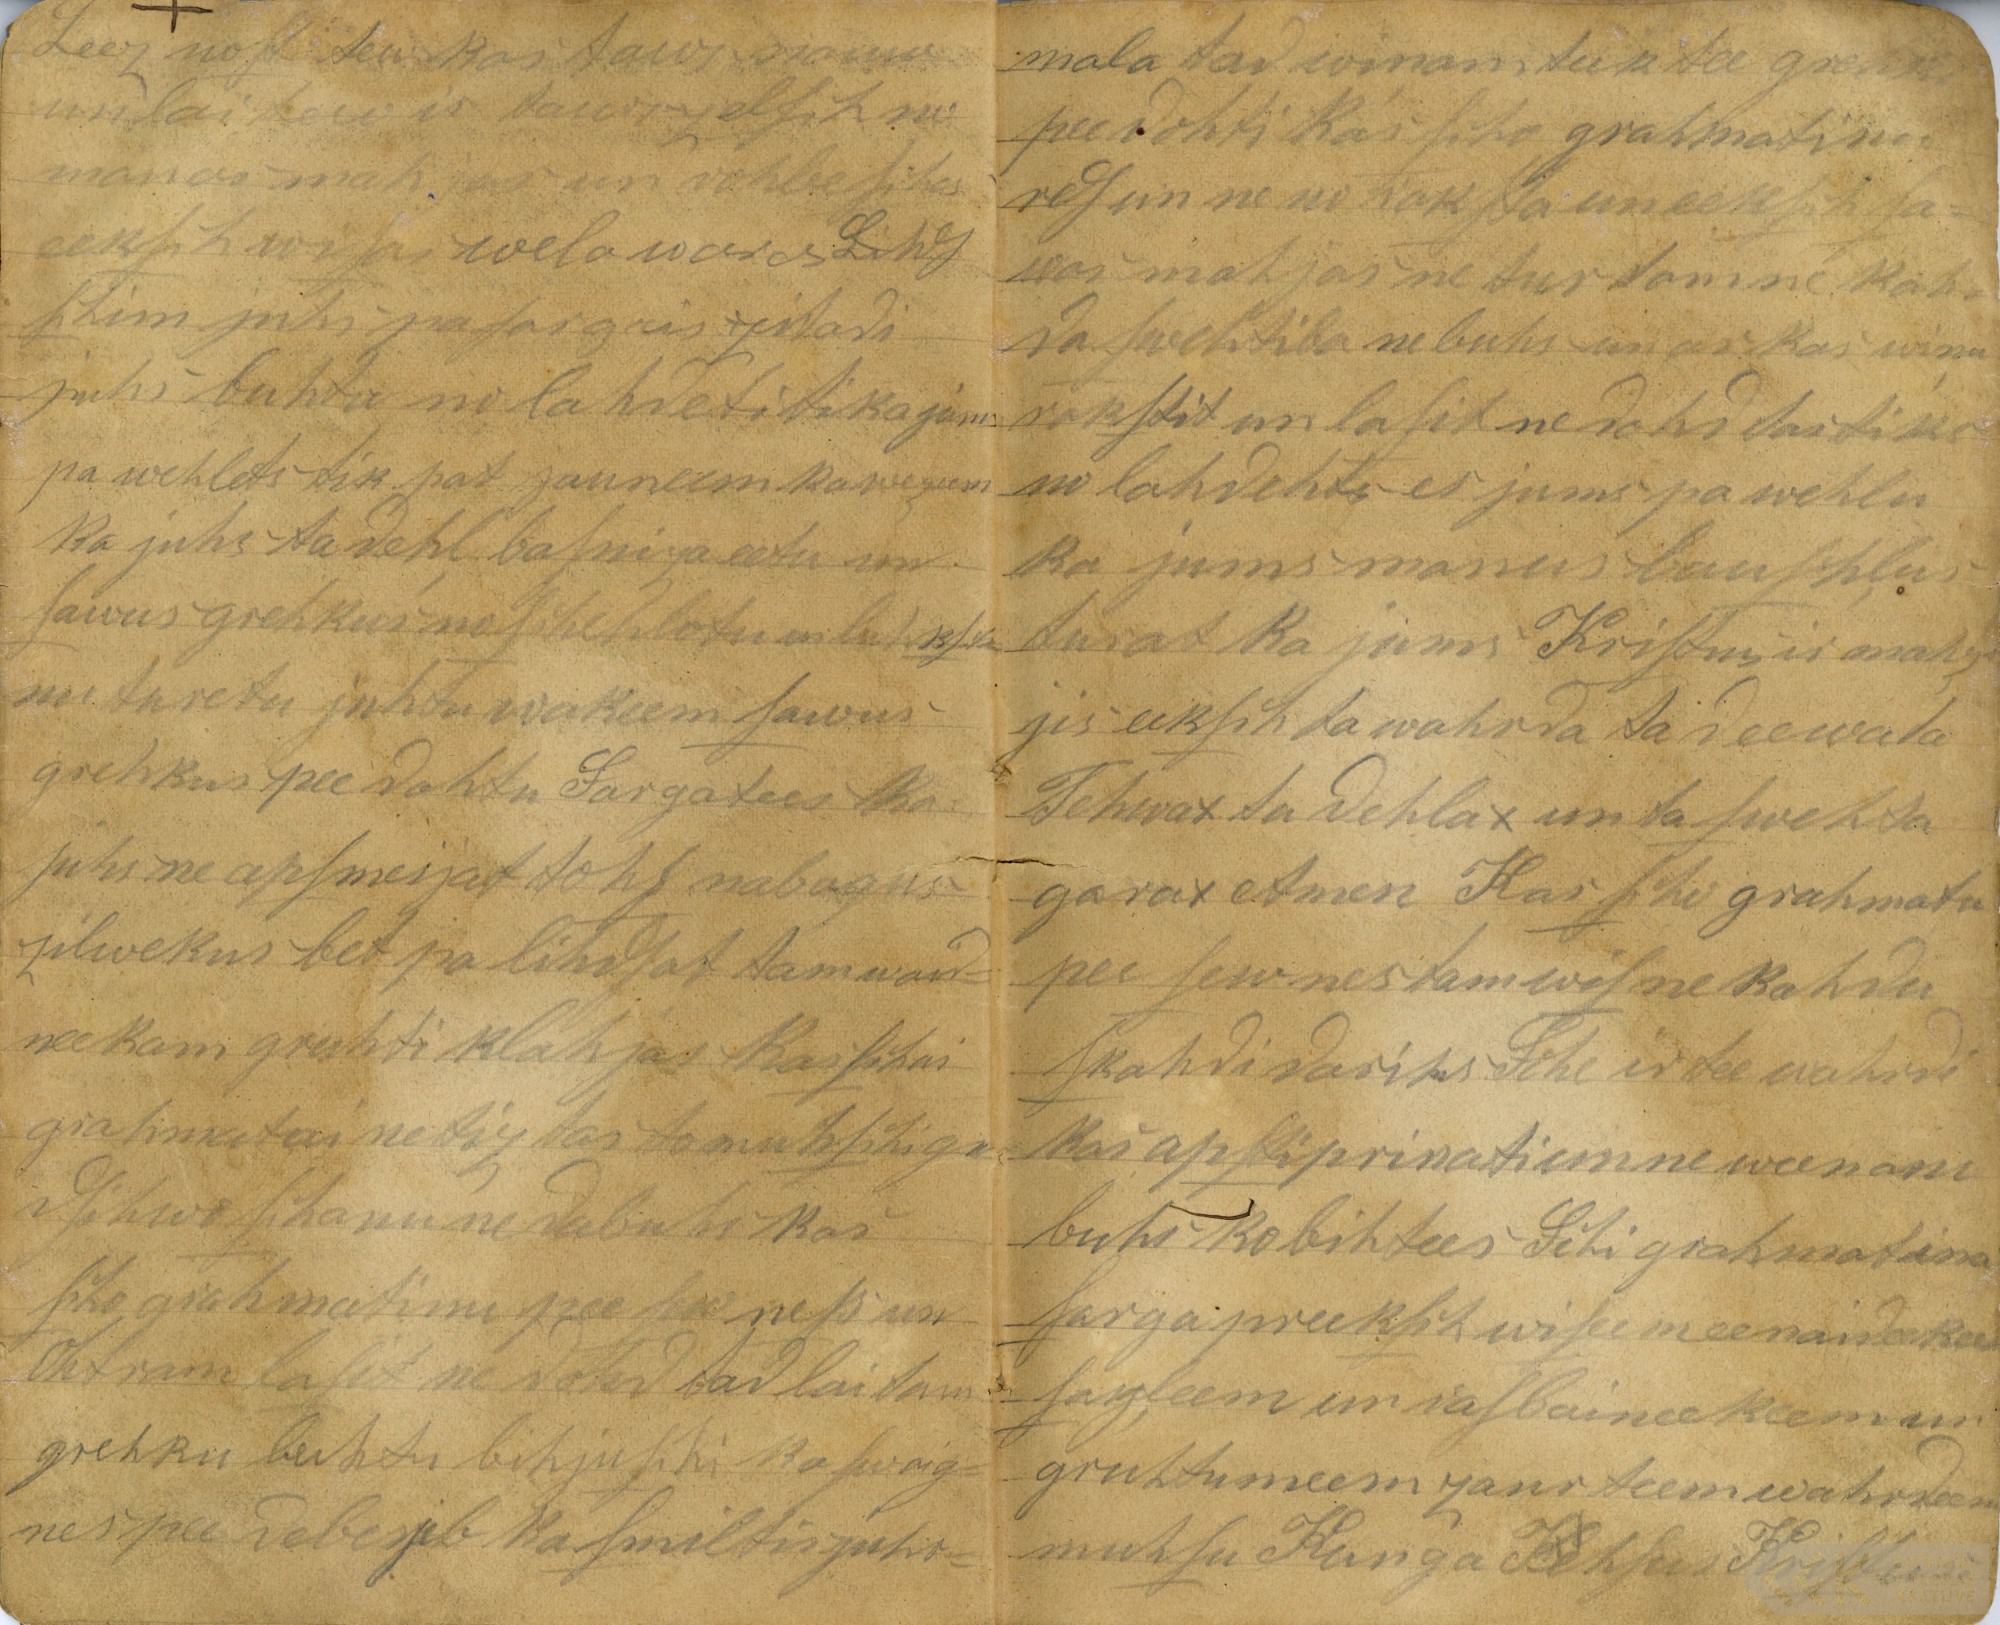 Leez nost tew kas tawz
un lai tew ir tawz elsih no
manas mahjas un dohbesihas
eeksih wisas wela waras Lihds
sihim juhs pasargais zitadi
juhs buhtu no lahdeti tik ka jums
pa wehlets tik pat jauneem ka wezeem
ka juhs tadehl basniza eetu un
sawus grehkus no sihehlotu un
nu turetu juhtu wakeem sawus
grehkus pee dohtu Sargatees ka
juhs ne apsmeijat tohs nabagus
zilwekus bet pa lihdsat tam waid=
neekam gruhti klahjas Kas sihai
grahmatai ne tiz tas to muhsihigu
dsihwo sihanu ne dabuhs kas
siho grahmatinu pee sew ness un
Ohtram lasit ne dohd tad lai tam
grehku buhtu bihjusihi ka swaig=
nes pee debesjib ka smiltis juhr=
mala tad winam tik tee grehki
pee dohti kas siho grahmatinu
reds un ne no raksta un eeksih sa=
was mahjas ne tur tam ne kah=
da swehtiba ne buhs un ar kas winu
rakstit un lasit ne dohd tas tiks
no lahdehts es jums pa wehlu
ka jums manus bausihlus
turat ka jums Kristus ir mahzi
jis eeksih ta wahrda ta deewa ta
Tehwa x ta dehla x un ta swehta
gara x etmen Kas siho grahmatu
pee sew nes tam wis ne kahdu
skahdi darihs Sihe ir tee wahrdi
kas apstiprinati un ne weenam
buhs ko bihtees Sihi grahmatina
sarga preeksih wiseem eenaideekeem
sagleem un raslaineekeem un
gruhtumeem zaur teem wahrdeem
muhsu Kunga Jehsus Kristus